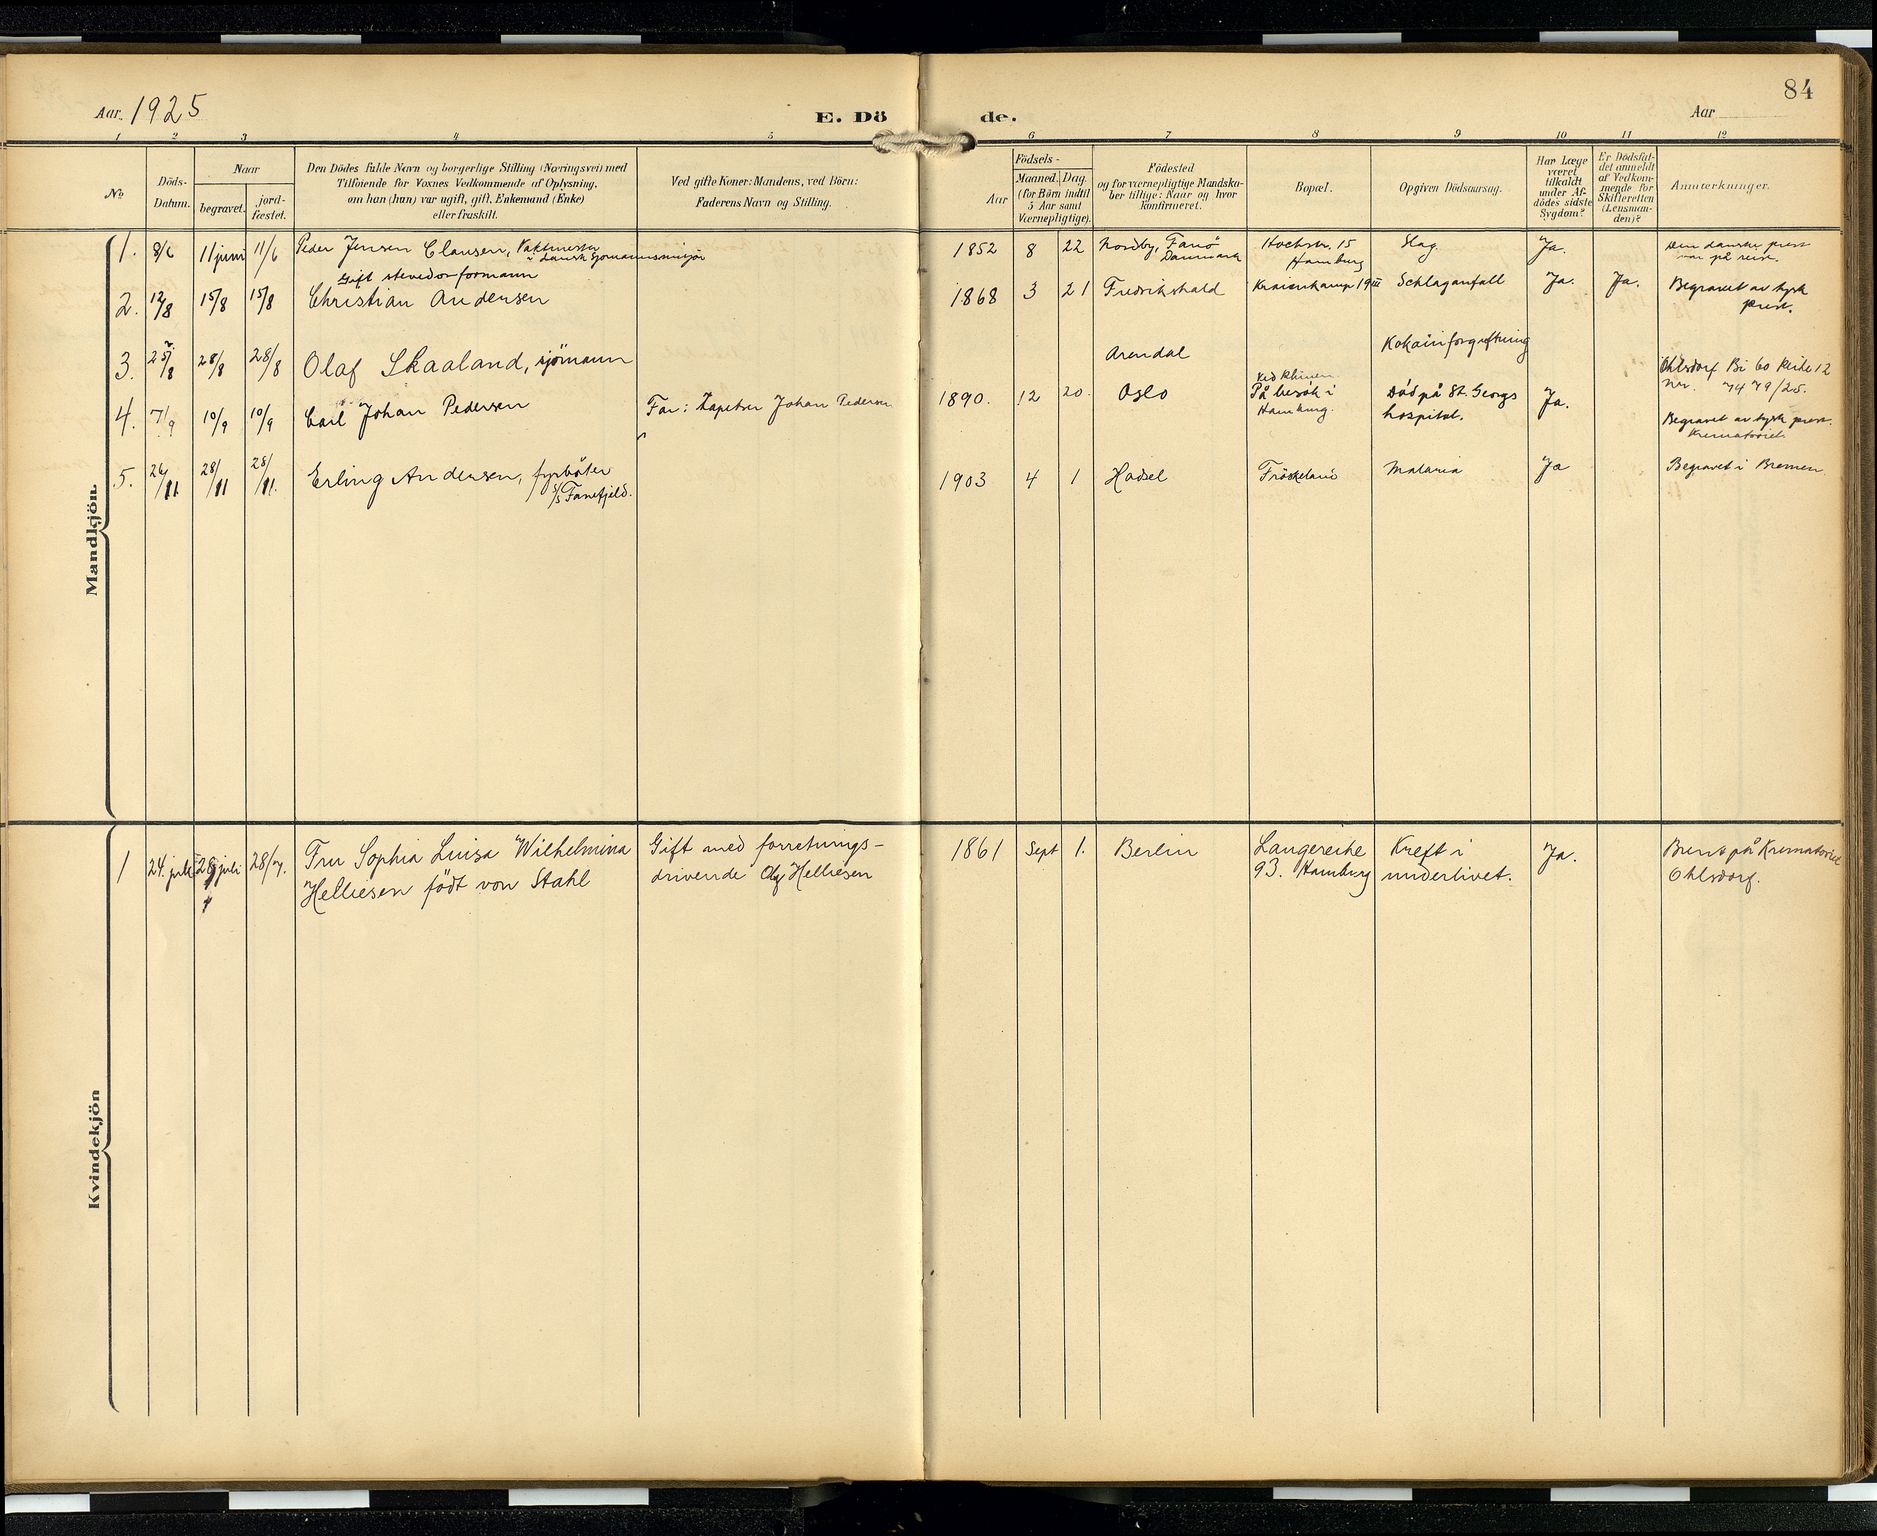 84
Aar. 1925
E. Dö
de.
Aar
1 2 3 4 5 6 7 8 9 10 11 12
No.
Döds-
Datum.
Naar
begravet.
jord-
fæstet.
Den Dödes fulde Navn og borgerlige Stilling (Næringsvei) med
Tilföiende for Voxnes Vedkommende af Oplysning,
om han (hun) var ugift, gift, Enkemand (Enke)
eller fraskilt.
Ved gifte Koner: Mandens, ved Börn:
Faderens Navn og Stilling.
Födsels-
Aar
Maaned.
Dag.
(for Börn indtil
5 Aar samt
Værnepligtige).
Födested
og for værnepligtige Mandska-
ber tillige: Naar og hvor
konfirmeret.
Bopæl.
Opgiven Dödsaarsag.
Har Læge
været
tilkaldt
under Af-
dödes sidste
Sygdom?
Er Dödsfal-
det anmeldt
af Vedkom-
mende for
Skifteretten
(Lensman-
den)?
Anmærkninger.
Mandkjön
1.
8/6
11 juni
11/6
Peder Jensen Clausen, Vaktmester
v. dansk sjömannsmisjon
1852
8
22
Nordby, Fanö
Danmark
Hochstr. 15
Hamburg
Slag.
Ja.
Den danske prest
var på reise.
2.
12/8
15/8
15/8
Gift stevedorformann
Christian Andensen
1868
3
21
Fredrikshald
Kraienkamp 19 III
Schlaganfall
Ja.
Ja.
Begravet av tysk
prest.
3.
25/8
28/8
28/8
Olaf Skaaland, sjömann
Arendal
Kokainforgiftning
Ohlsdorf Bi 60 Reihe 12
Nr. 7479/25.
4.
7/9
10/9
10/9
Carl Johan Pedersen
Far: Kaptein Johan Pedersen
1890.
12
20.
Oslo
På besök i
Hamburg.
Död på St. Georgs
hospital.
Ja.
Begravet av tysk prest.
Krematoriet.
5.
26/11.
28/11
28/11.
Erling Andensen, fyrböter
s/s Fanefjeld.
1903
4
1
Hadsel
Fröskeland
Malaria
Ja
Begravet i Bremen
Kvindekjön
1
24. juli
28 juli
28/7.
Fru Sophia Luisa Wilhelmina
Helliesen födt von Stahl
Gift med forretnings-
drivende Olaf Helliesen
1861
Sept
1.
Berlin
Langereihe
93. Hamburg
Kreft i
underlivet.
Ja.
Brent på Krematoriet
Ohlsdorf.